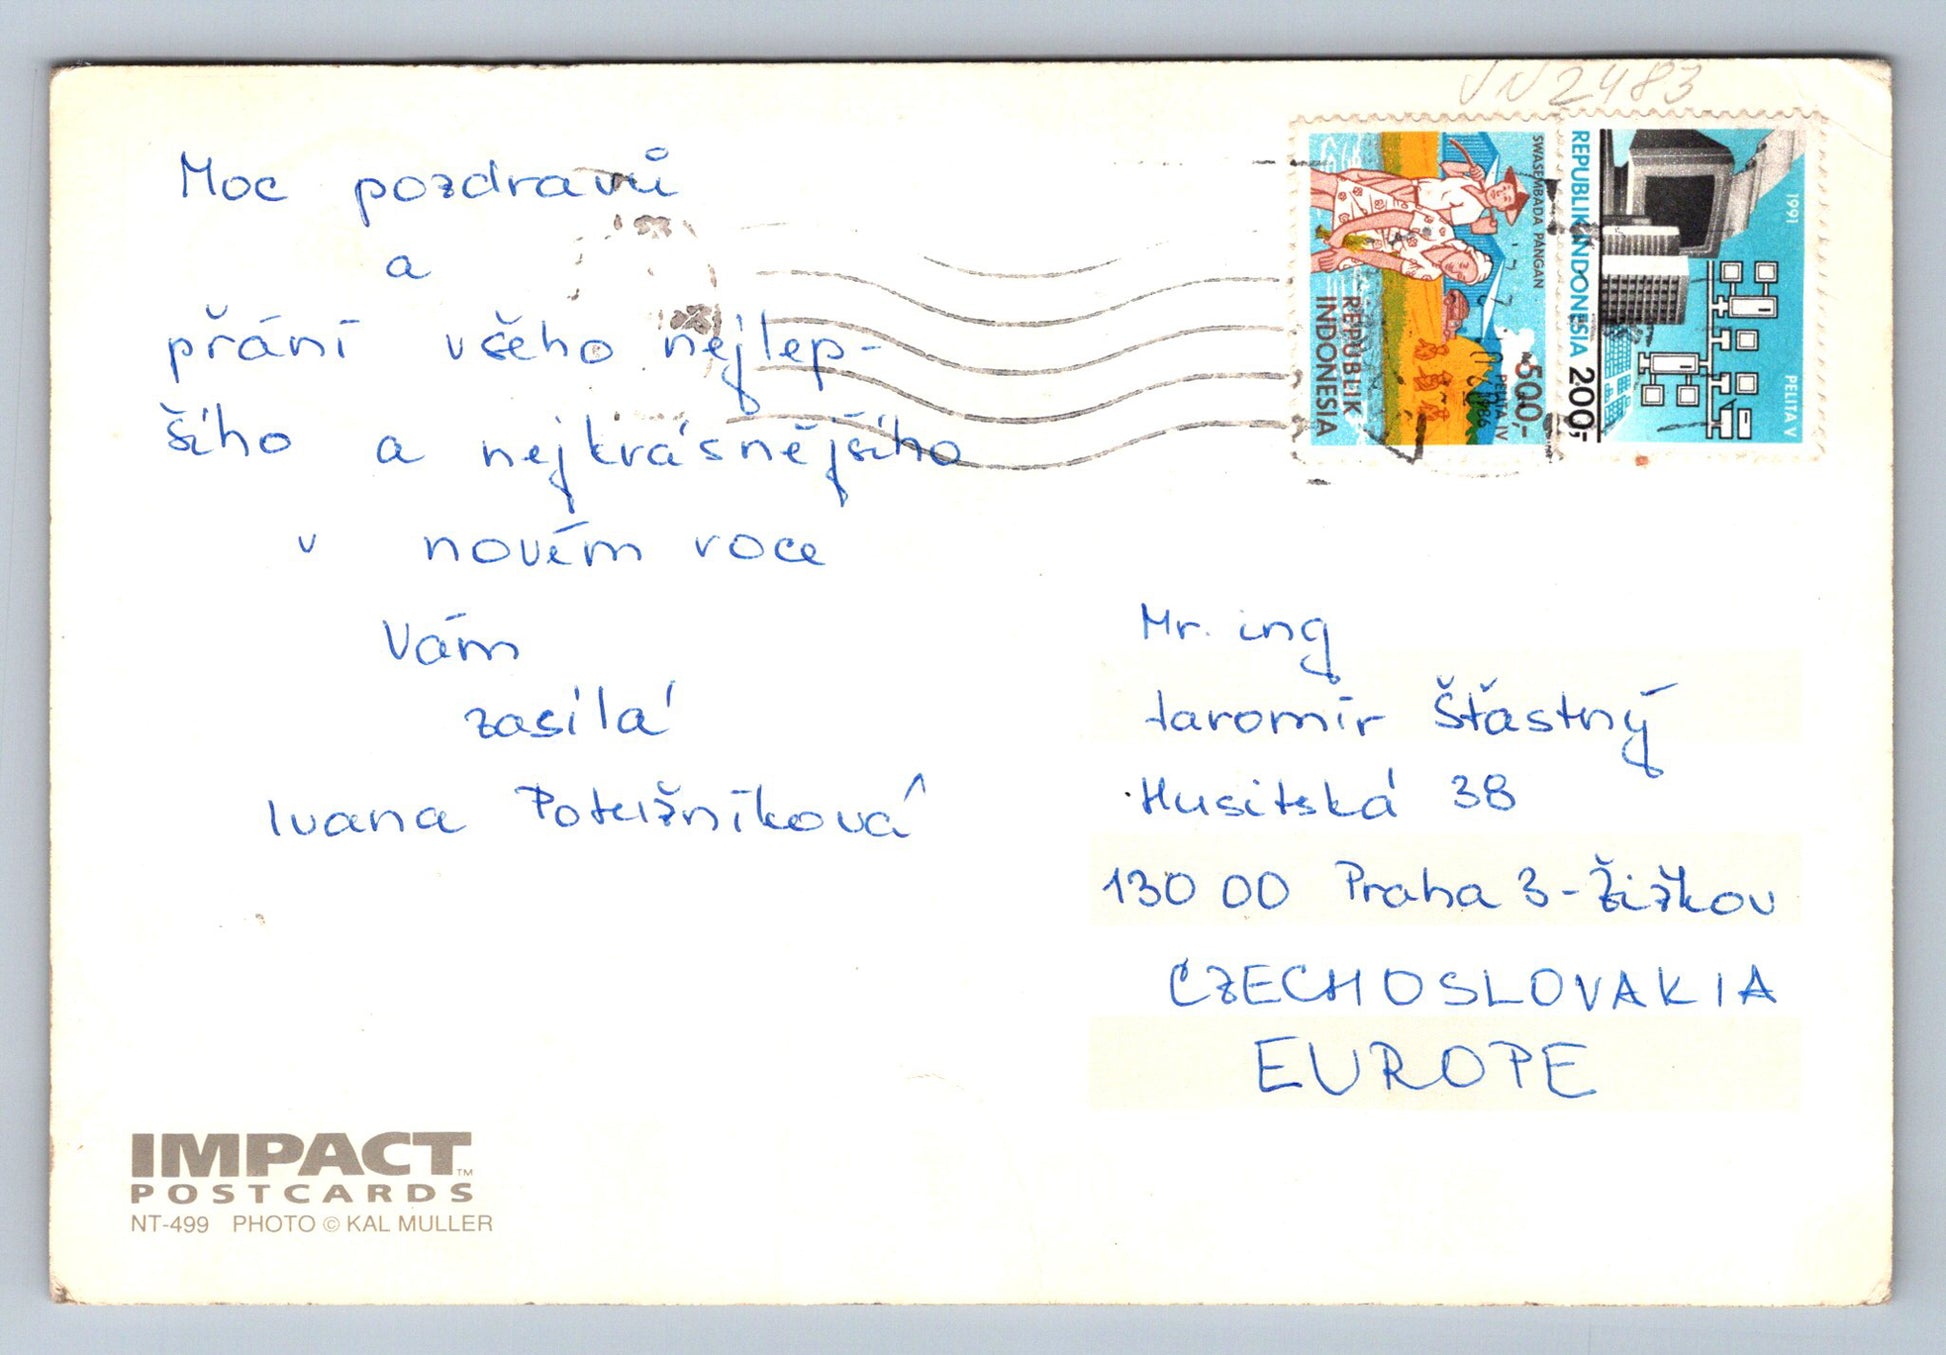 Moc pozdravů
a
přání všeho nejlep-
šího a nejkrásnějšího
v novém roce
Vám
zasílá
Ivana
VN2483
SWASEMBADA PANGAN
REPUBLIK
INDONESIA
500,-
PELITA IV
1986
REPUBLIK INDONESIA 200,-
1991
PELITA V
Mr. ing
Jaromír Šťastný
Husitská 38
130 00 Praha 3-Žižkov
CZECHOSLOVAKIA
EUROPE
IMPACT™
POSTCARDS
NT-499 PHOTO © KAL MULLER